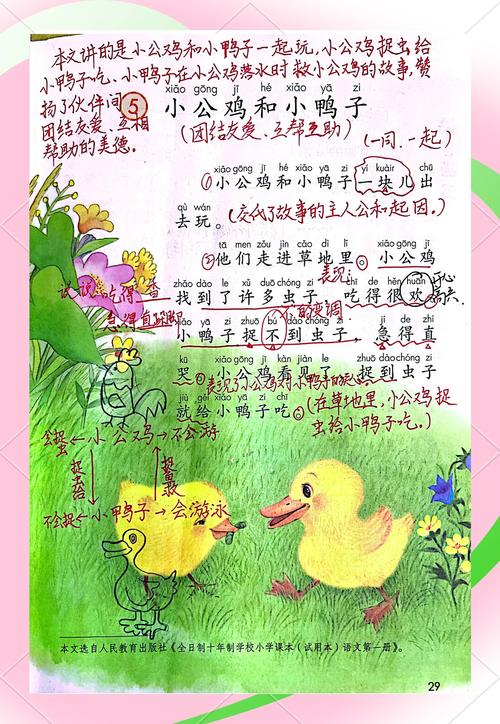 本文讲的是小公鸡和小鸭子一起玩,小公鸡捉虫给
小鸭子吃、小鸭子在小公鸡落水时救小公鸡的故事,赞
扬了伙伴间
团结友爱、互相
帮助的美德。
xiǎo gōng jī hé xiǎo yā zi
⑤ 小公鸡和小鸭子
(团结友爱、互帮互助)
(一同、一起)
xiǎo gōng jī hé xiǎo yā zi yí kuàir chū
①小公鸡和小鸭子一块儿出
qù wán
去玩。(交代了故事的主人公和起因。)
tā men zǒu jìn cǎo dì lǐ xiǎo gōng jī
②他们走进草地里。小公鸡
表现:
zhǎo dào le xǔ duō chóng zi chī de hěn huān
找到了许多虫子,吃得很欢
开心
高兴。
试试 吃得 香
急得直跺脚
的变调
xiǎo yā zi zhuō bú dào chóng zi jí de zhí
小鸭子捉不到虫子,急得直
kū xiǎo gōng jī kàn jiàn le zhuō dào chóng zi
哭。小公鸡看见了,捉到虫子
表现了小公鸡对小鸭子的
jiù gěi xiǎo yā zi chī
就给小鸭子吃。(在草地里,小公鸡捉
虫给小鸭子吃。)
会捉←小公鸡→不会游
捉 救
不会捉←小鸭子→会游泳
本文选自人民教育出版社《全日制十年制学校小学课本(试用本)语文第一册》。
29